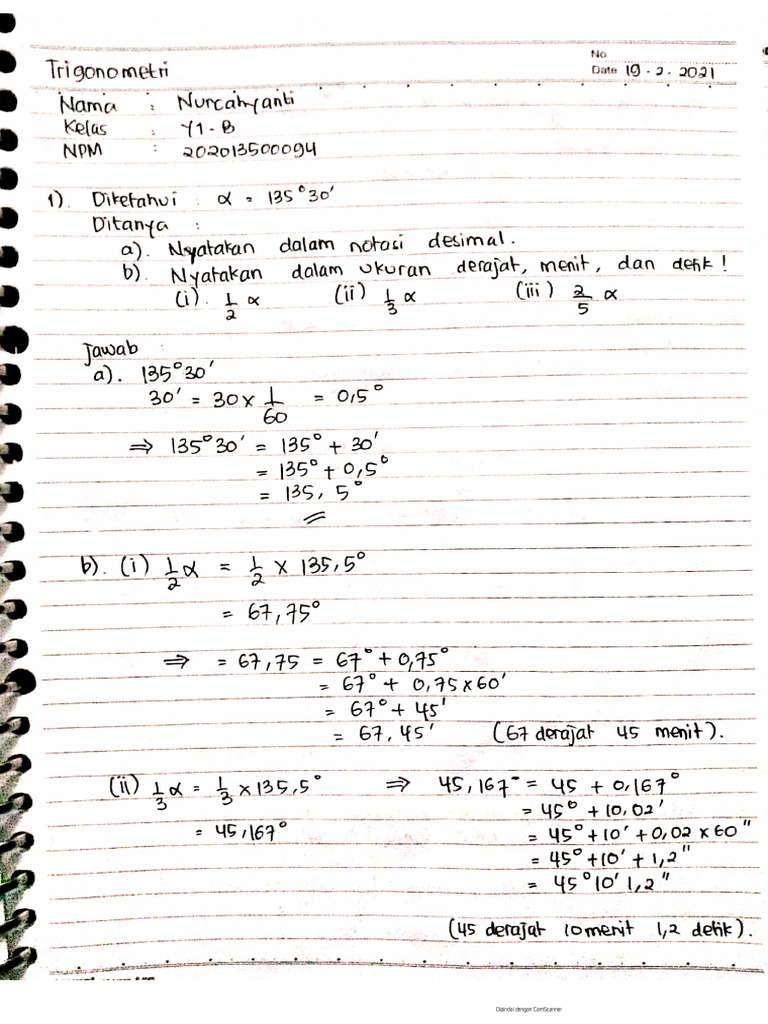 Trigonometri
No
Date 19 - 2 - 2021
Nama : Nurcahyanti
Kelas : Y1 - B
NPM : 202013500094
1). Diketahui : α = 135°30'
Ditanya :
a). Nyatakan dalam notasi desimal.
b). Nyatakan dalam ukuran derajat, menit, dan detik !
(i). 1/2 α (ii) 1/3 α (iii) 2/5 α
Jawab :
a). 135°30'
30' = 30 × 1/60 = 0,5°
⇒ 135°30' = 135° + 30'
= 135° + 0,5°
= 135, 5°
b). (i) 1/2 α = 1/2 × 135,5°
= 67,75°
⇒ = 67,75 = 67° + 0,75°
= 67° + 0,75×60'
= 67° + 45'
= 67, 45' (67 derajat 45 menit).
(ii) 1/3 α = 1/3 × 135,5° ⇒ 45,167° = 45 + 0,167°
= 45,167° = 45° + 10,02'
= 45° + 10' + 0,02 × 60"
= 45° + 10' + 1,2"
= 45°10' 1,2"
(45 derajat 10 menit 1,2 detik).
Dipindai dengan CamScanner